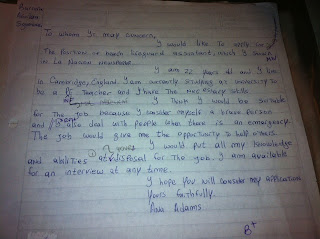 To whom it may concern,
I would like to apply for
the Position of beach lifeguard assistant, which I saw
in La Nacion
I am 22 years old and I live
in Cambridge, England. I am currently studying at university to
be a PE Teacher and I have the necessary skills
I think I would be suitable
for the job because I consider myself a brave person
and also deal with people when there is an emergency
The job would give me the opportunity to help others
I would put all my knowledge
and abilities at disposal for the job. I am available
for an interview at any time.
I hope you will consider my application
Yours faithfully,
Adams
B+